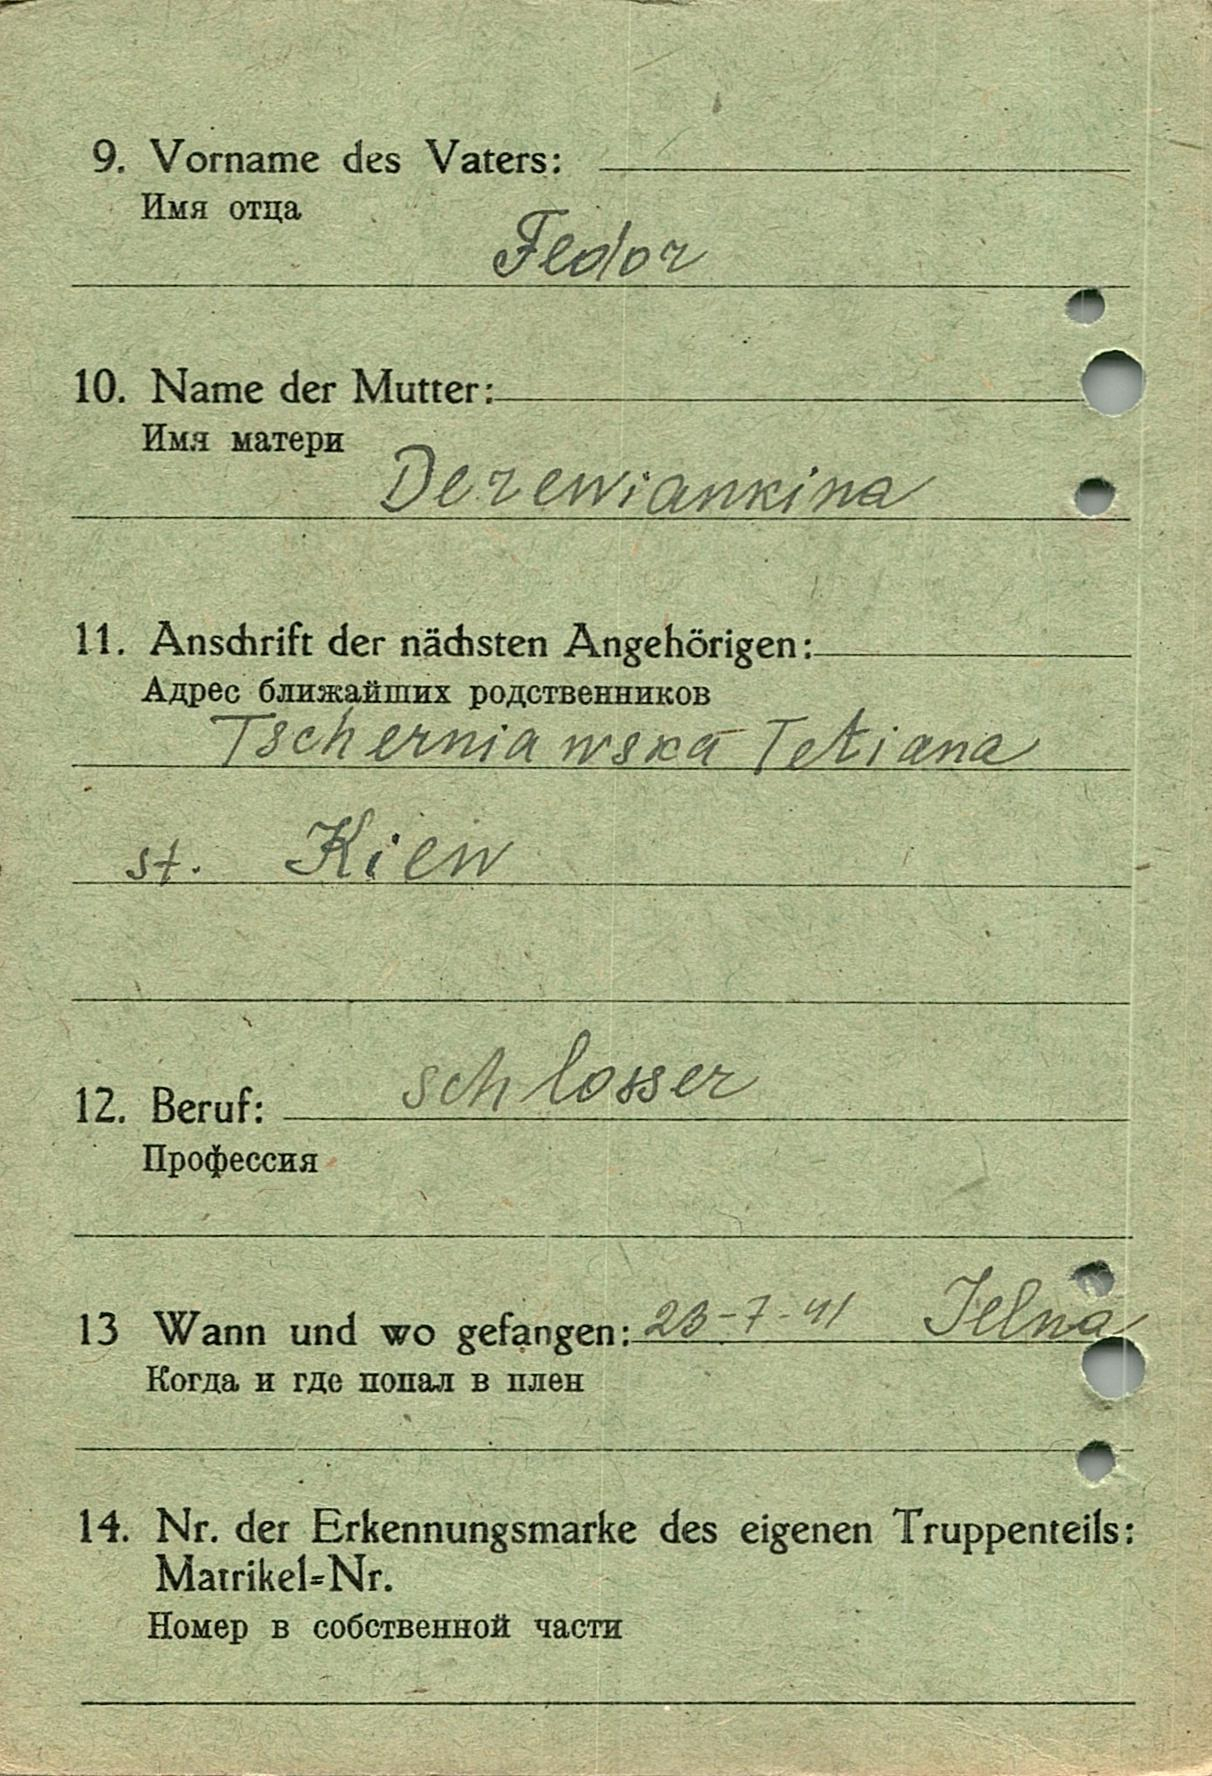 9. Vorname des Vaters:
Имя отца
Fedor
10. Name der Mutter:
Имя матери
Derewiankina
11. Anschrift der nächsten Angehörigen:
Адрес ближайших родственников
Tscherniawska Tetiana
st. Kiew
schlosser
12. Beruf:
Профессия
13 Wann und wo gefangen: 23-7-41 Jelna
Когда и где попал в плен
14. Nr. der Erkennungsmarke des eigenen Truppenteils:
Matrikel=Nr.
Номер в собственной части